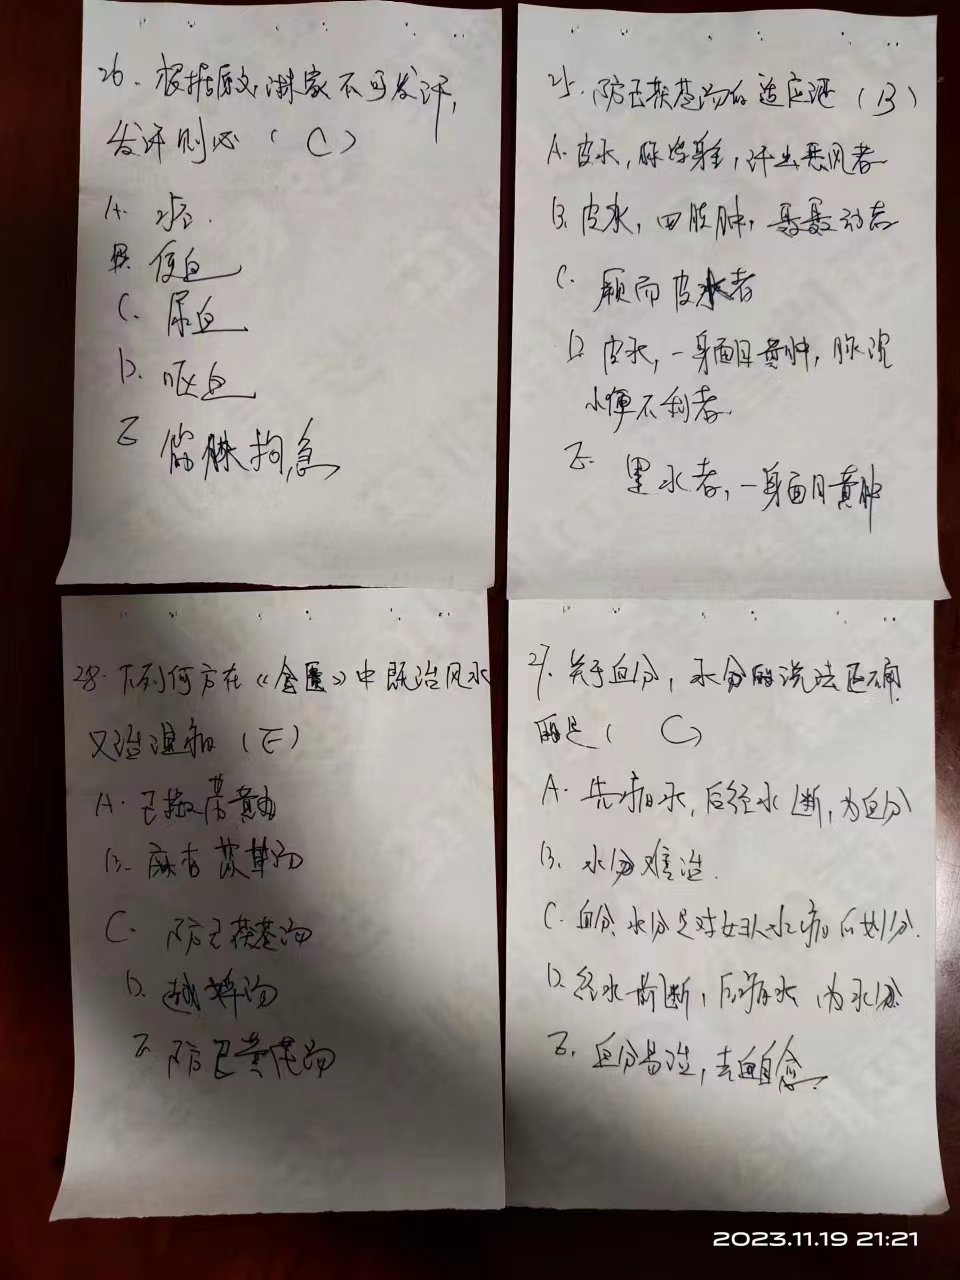 26. 根据原文淋家不可发汗,
发汗则必 ( C )
A.
B. 便血
C. 尿血
D. 呕血
E 筋脉拘急
25. 防己茯苓汤的适应证 ( B )
A. 皮水, 脉浮身重, 汗出恶风者
B. 皮水, 四肢肿, 聂聂动者
C. 厥而皮水者
D. 皮水, 一身面目黄肿, 脉沉
小便不利者.
E. 里水者, 一身面目黄肿
28. 下列何方在《金匮》中既治风水
又治湿病 ( E )
A. 己椒苈黄丸
B. 麻杏苡草汤
C. 防己茯苓汤
D. 越婢汤
E 防己黄芪汤
27. 关于血分, 水分的说法正确
的是 ( C )
A. 先病水, 后经水断, 为血分
B. 水分难治.
C. 血分、水分是对妇人水病而划分.
D. 经水前断, 后病水, 为水分
E. 血分易治, 去血自愈.
2023.11.19 21:21